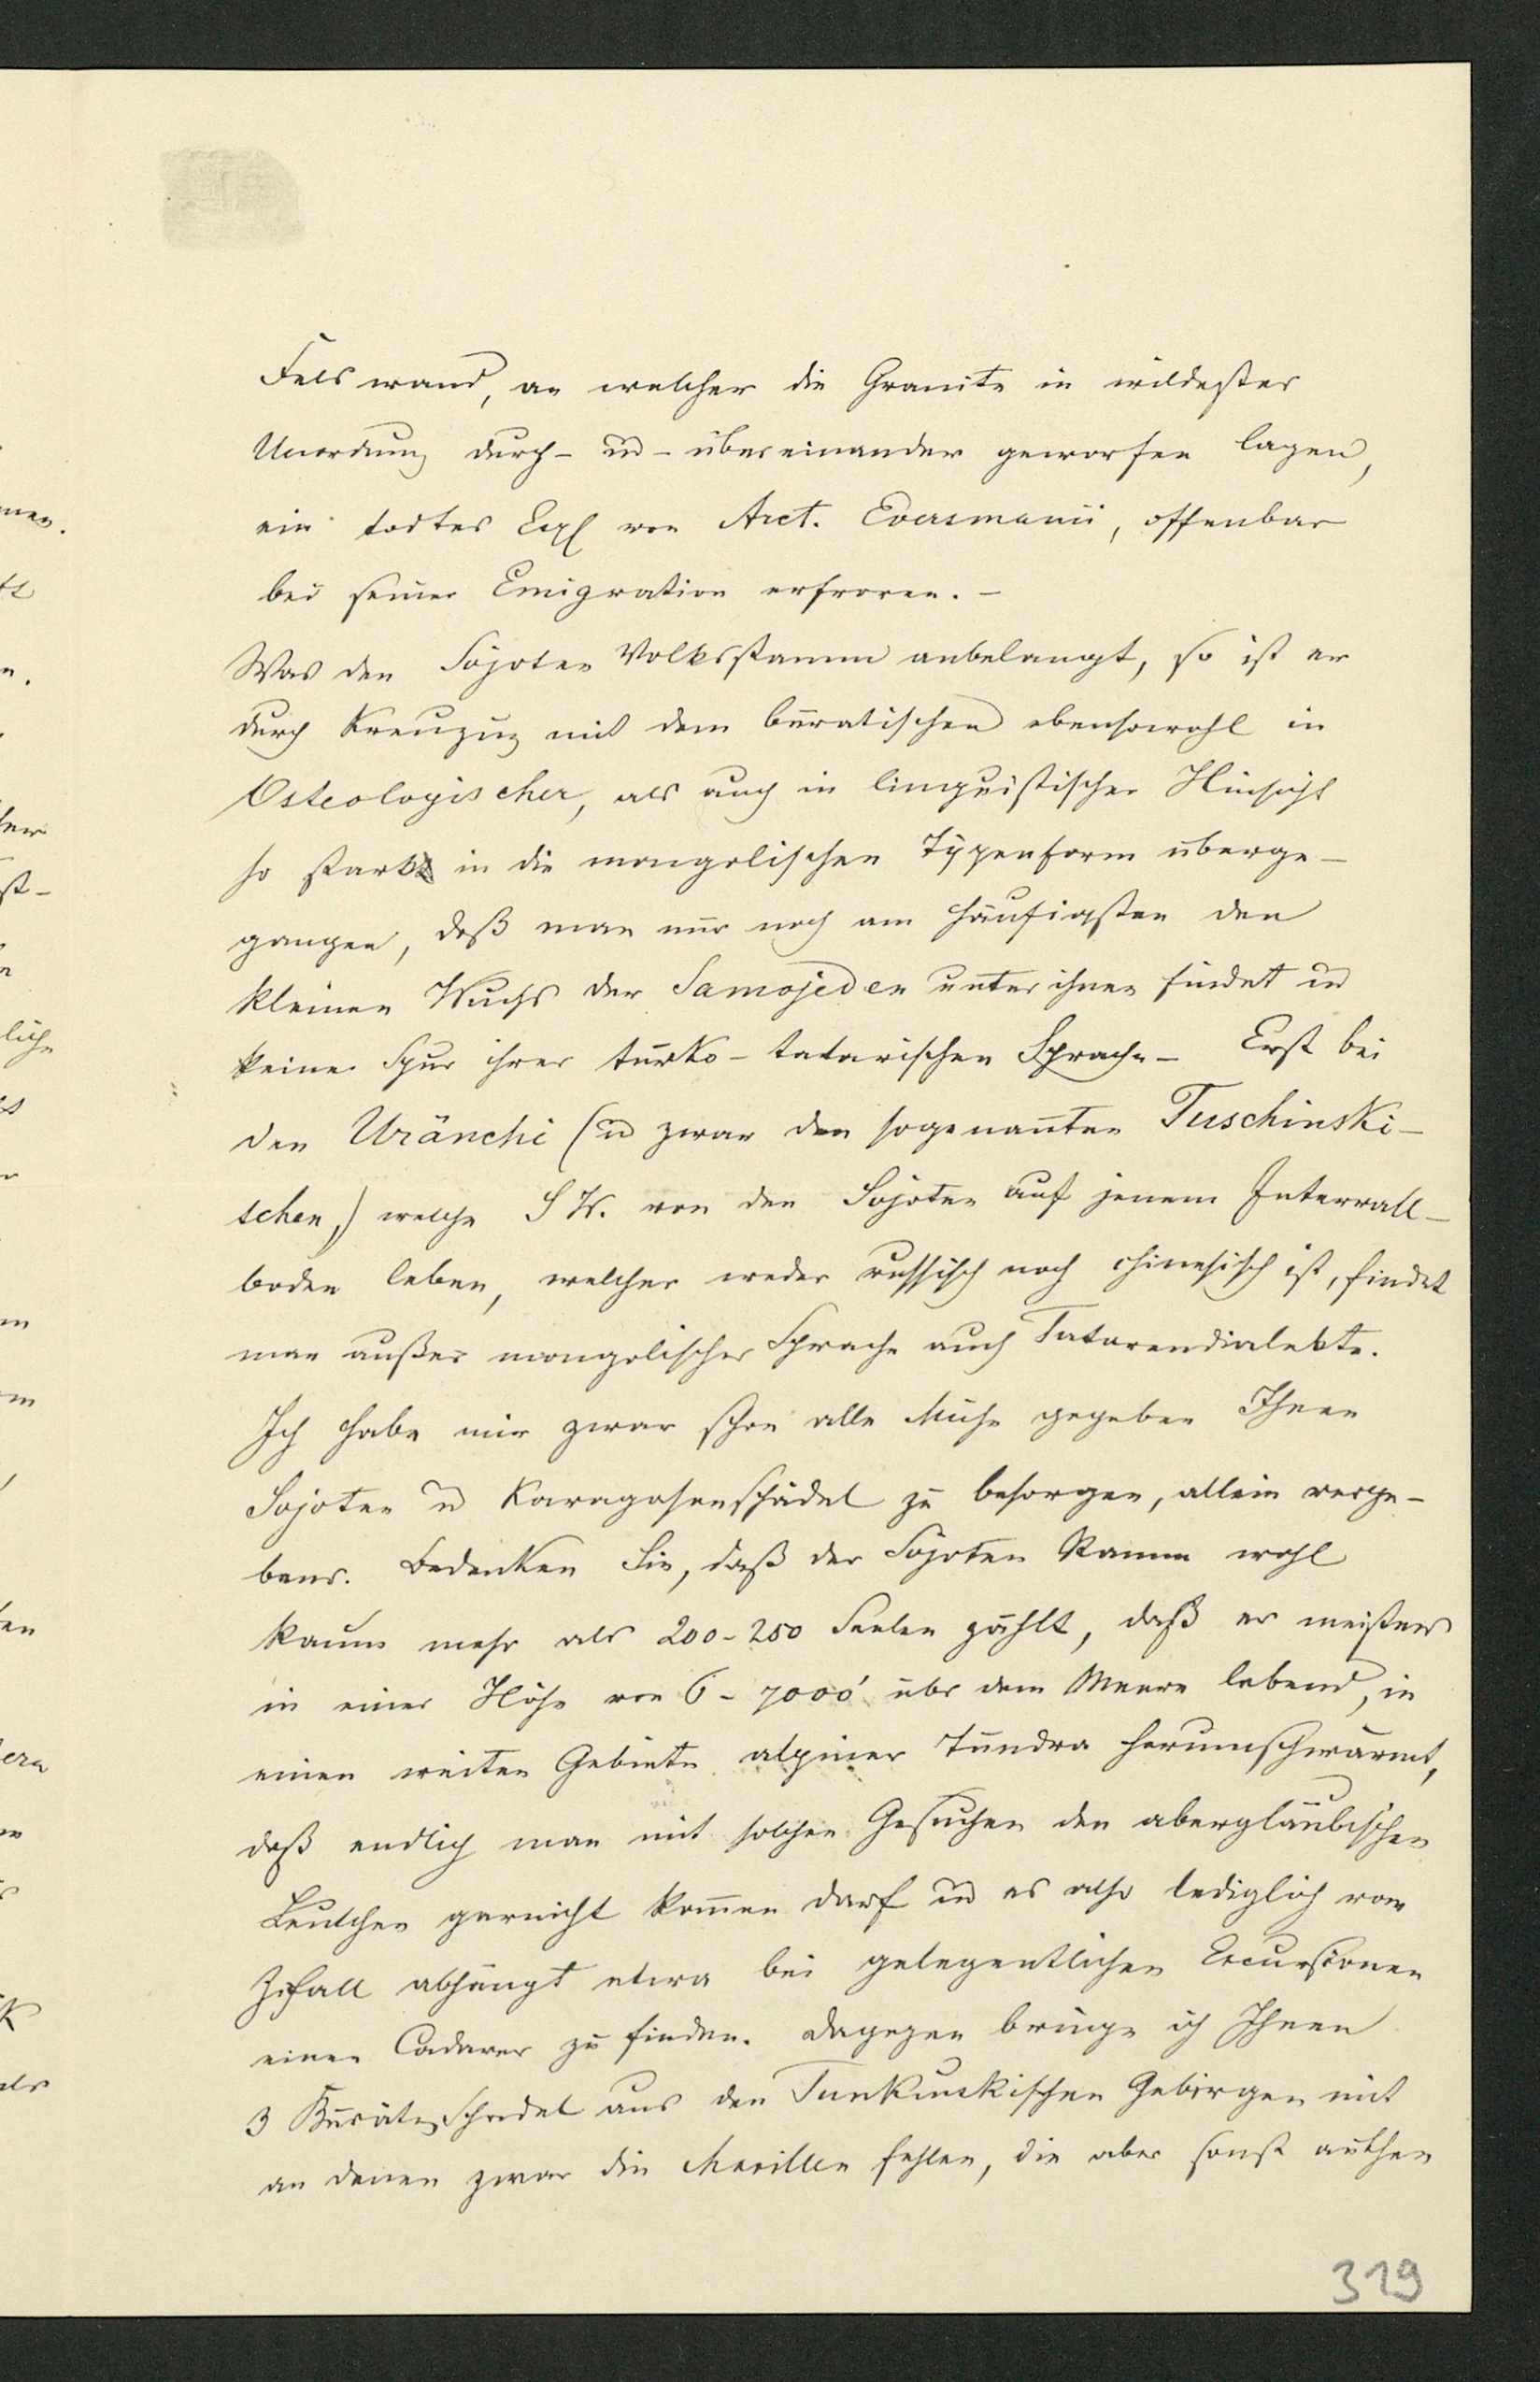 Felswand, an welcher die Granite in wildester
Unordnung durch- u̅d - übereinander geworfen lagen,
ein todtes Expl von Arct. Eversmanii, offenbar
bei seiner Emigration erfroren. –
Was den Sojoten Volksstamm anbelangt, so ist er
durch Kreuzung mit dem burätischen ebensowohl in
Osteologischer, als auch in linguistischer Hinsicht
so stark in die mongolischen Typenform überge-
gangen, daß man nur noch am häufigsten den
kleinen Wuchs der Samojeden unter ihnen findet ud
keine Spur ihrer turko-tatarischen Sprache – Erst bei
den Uränchi (ud zwar den sogenan̅ten Tuschinski-
schen,) welche S W. von den Sojoten auf jenem Intervall-
boden leben, welcher weder russisch noch chinesisch ist, findet
man außer mongolischer Sprache auch Tatarendialekte.
Ich habe mir zwar schon alle Mühe gegeben Ihnen
Sojoten ud Karagasenschädel zu besorgen, allein verge-
bens. Bedenken Sie, daß der Sojoten Stamm wohl
kaum mehr als 200-250 Seelen zählt, daß er meistens
in einer Höhe von 6-7000' über dem Meere lebend, in
einen weiten Gebiete alpiner Tundra herumschwärmt,
daß endlich man mit solchen Gesuchen den abergläubischen
Leutchen garnicht kom̅en darf ud es also lediglich vom
Zufall abhängt etwa bei gelegentlichen Excursionen
einen Cadaver zu finden. Dagegen bringe ich Ihnen
3 Burätenschädel aus den Tunkinskischen Gebirgen mit
an denen zwar die Maxillen fehlen, die aber sonst authen
319